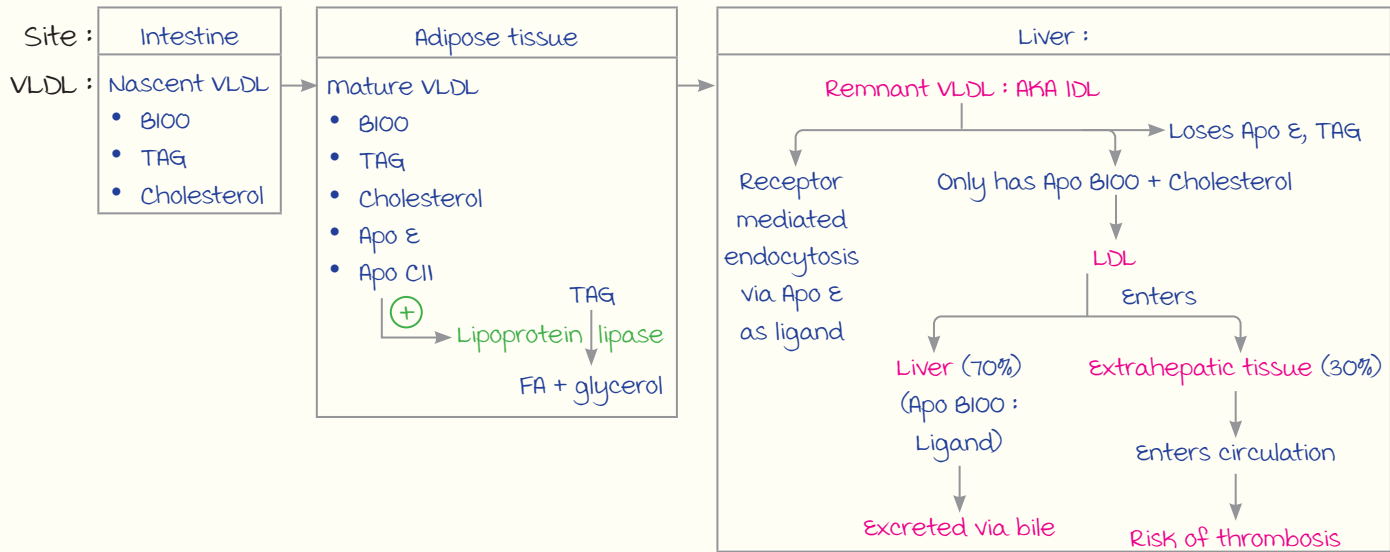 Site : Intestine Adipose tissue Liver :
VLDL : Nascent VLDL
• B100
• TAG
• Cholesterol
mature VLDL
• B100
• TAG
• Cholesterol
• Apo E
• Apo CII
+
TAG
Lipoprotein lipase
FA + glycerol
Remnant VLDL : AKA IDL
Loses Apo E, TAG
Receptor
mediated
endocytosis
via Apo E
as ligand
Only has Apo B100 + Cholesterol
LDL
Enters
Liver (70%)
(Apo B100 :
Ligand)
Excreted via bile
Extrahepatic tissue (30%)
Enters circulation
Risk of thrombosis